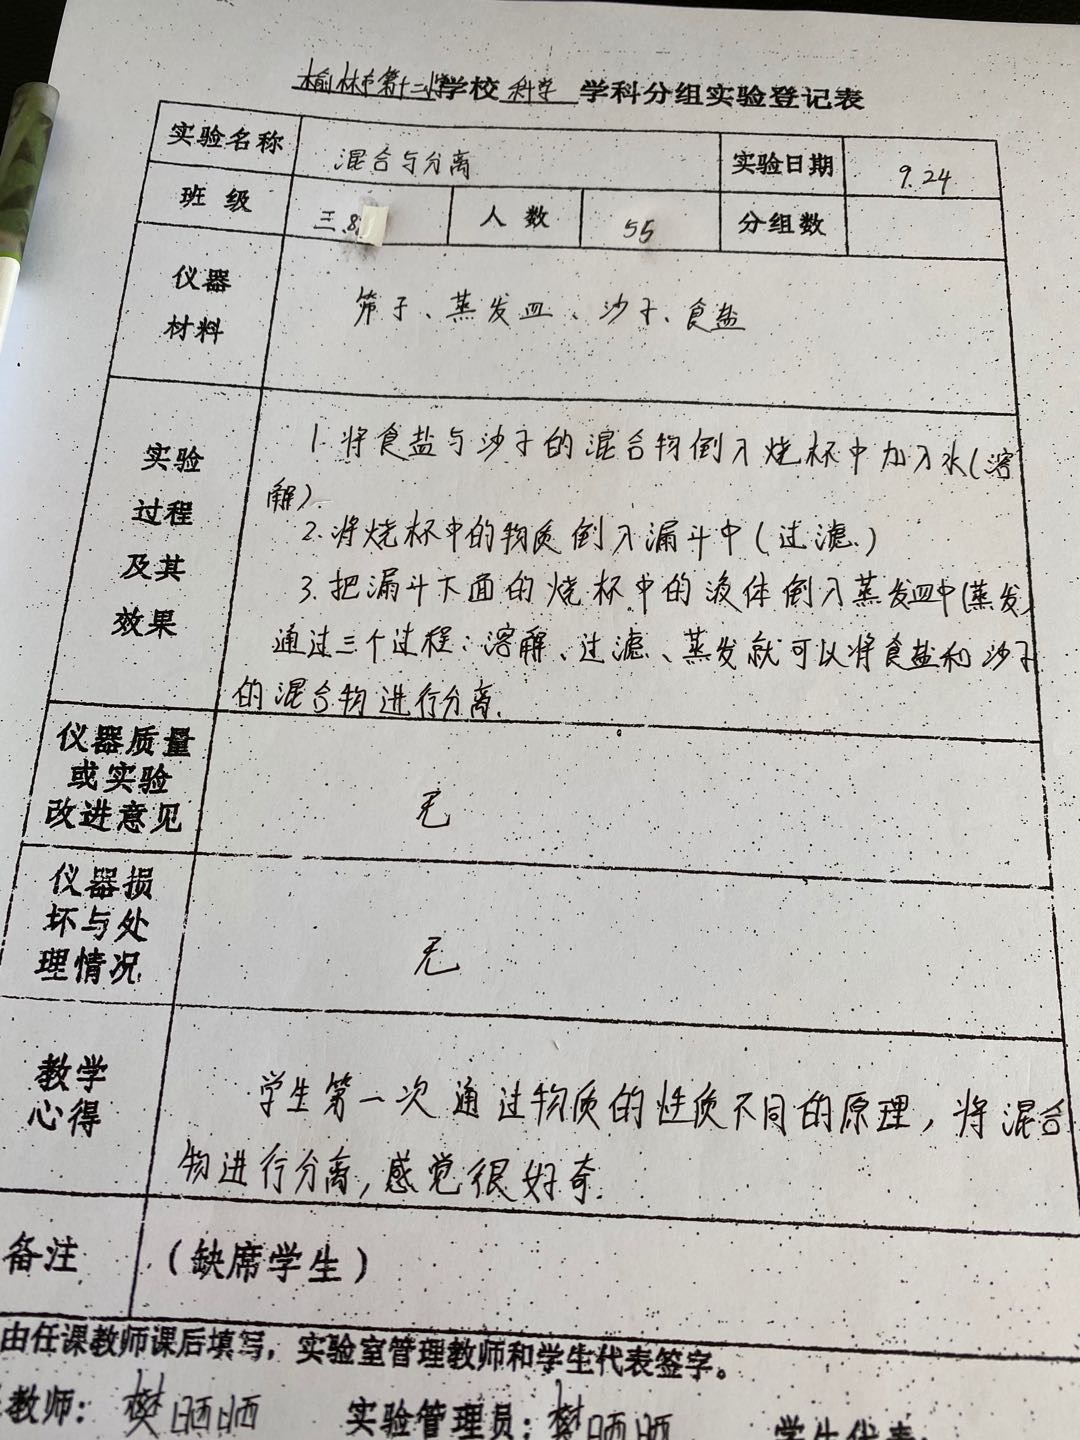 榆林市第十二小学校 科学 学科分组实验登记表
实验名称 混合与分离 实验日期 9.24
班级 三.8 人数 55 分组数
仪器材料 筛子、蒸发皿、沙子、食盐
实验过程及其效果
1.将食盐与沙子的混合物倒入烧杯中加入水(溶
解).
2.将烧杯中的物质倒入漏斗中(过滤.)
3.把漏斗下面的烧杯中的液体倒入蒸发皿中(蒸发)
通过三个过程:溶解、过滤、蒸发就可以将食盐和沙子
的混合物进行分离.
仪器质量或实验改进意见 无
仪器损坏与处理情况 无
教学心得
学生第一次通过物质的性质不同的原理,将混合
物进行分离,感觉很好奇.
备注 (缺席学生)
由任课教师课后填写,实验室管理教师和学生代表签字。
教师: 樊 实验管理员: 樊 学生代表: